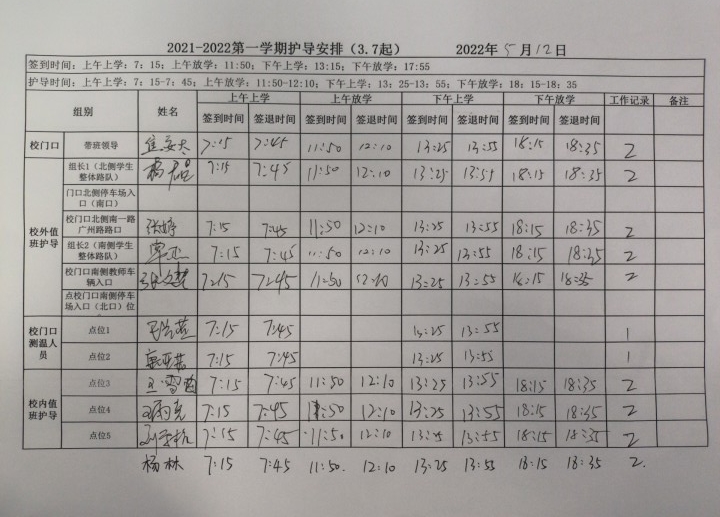 2021-2022第一学期护导安排（3.7起） 2022年5月12日
签到时间：上午上学：7：15；上午放学：11:50；下午上学：13:15；下午放学：17:55
护导时间：上午上学：7：15-7：45；上午放学：11:50-12:10；下午上学：13：25-13：55；下午放学：18：15-18：35
组别 姓名 上午上学 上午放学 下午上学 下午放学 工作记录 备注
签到时间 签退时间 签到时间 签退时间 签到时间 签退时间 签到时间 签退时间
校门口 带班领导 7:15 7:45 11:50 12:10 13:25 13:55 18:15 18:35 2
校外值班护导
组长1（北侧学生
整体路队） 7:15 7:45 11:50 12:10 13:25 13:55 18:15 18:35 2
门口北侧停车场入
口（南口）
校门口北侧南一路
广州路路口 张婷 7:15 7:45 11:50 12:10 13:25 13:55 18:15 18:35 2
组长2（南侧学生
整体路队） 7:15 7:45 11:50 12:10 13:25 13:55 18:15 18:35 2
校门口南侧教师车
辆入口 7:15 7:45 11:50 12:10 13:25 13:55 18:15 18:35 2
点校门口南侧停车
场入口（北口）位
校门口测温人员
点位1 7:15 7:45 13:25 13:55 1
点位2 7:15 7:45 13:25 13:55 1
校内值班护导
点位3 7:15 7:45 11:50 12:10 13:25 13:55 18:15 18:35 2
点位4 7:15 7:45 11:50 12:10 13:25 13:55 18:15 18:35 2
点位5 7:15 7:45 11:50 12:10 13:25 13:55 18:15 18:35 2
杨林 7:15 7:45 11:50. 12:10 13:25 13:55 18:15 18:35 2.